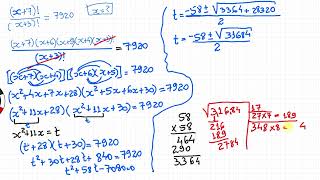 (x+7)!/(x+3)! = 7920    x=?
(x+7)(x+6)(x+5)(x+4)(x+3)!/(x+3)! = 7920
[(x+7)(x+4)][(x+6)(x+5)] = 7920
(x²+4x+7x+28)(x²+5x+6x+30) = 7920
(x²+11x+28)(x²+11x+30) = 7920
x²+11x=t
(t+28)(t+30)=7920
t²+30t+28t+840=7920
t²+58t-7080=0
t = -58±√3364+28320/2
t = -58±√31684/2
58
×58
464
290
3364
√31684
1
216
189
2784
17
27×7=189
348×8=
4